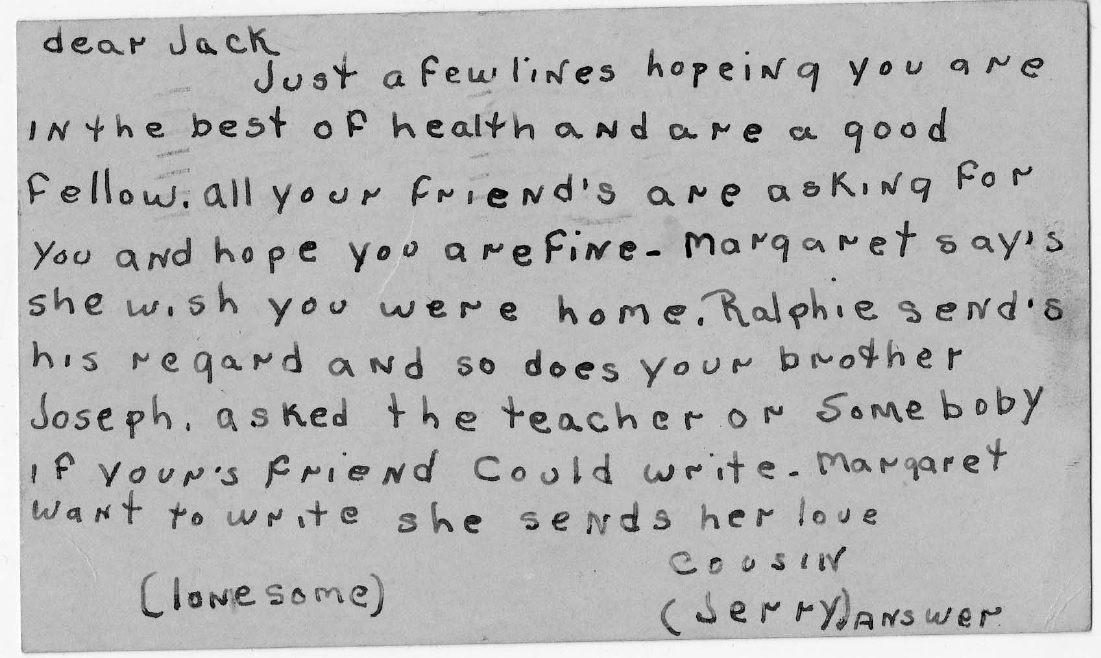 dear Jack
Just a few lines hopeing you are
in the best of health and are a good
fellow. all your friend's are asking for
you and hope you are fine - Margaret say's
she wish you were home. Ralphie send's
his regard and so does your brother
Joseph. asked the teacher or some boby
if your's friend could write - Margaret
want to write she sends her love
cousin
(lonesome) (Jerry) answer